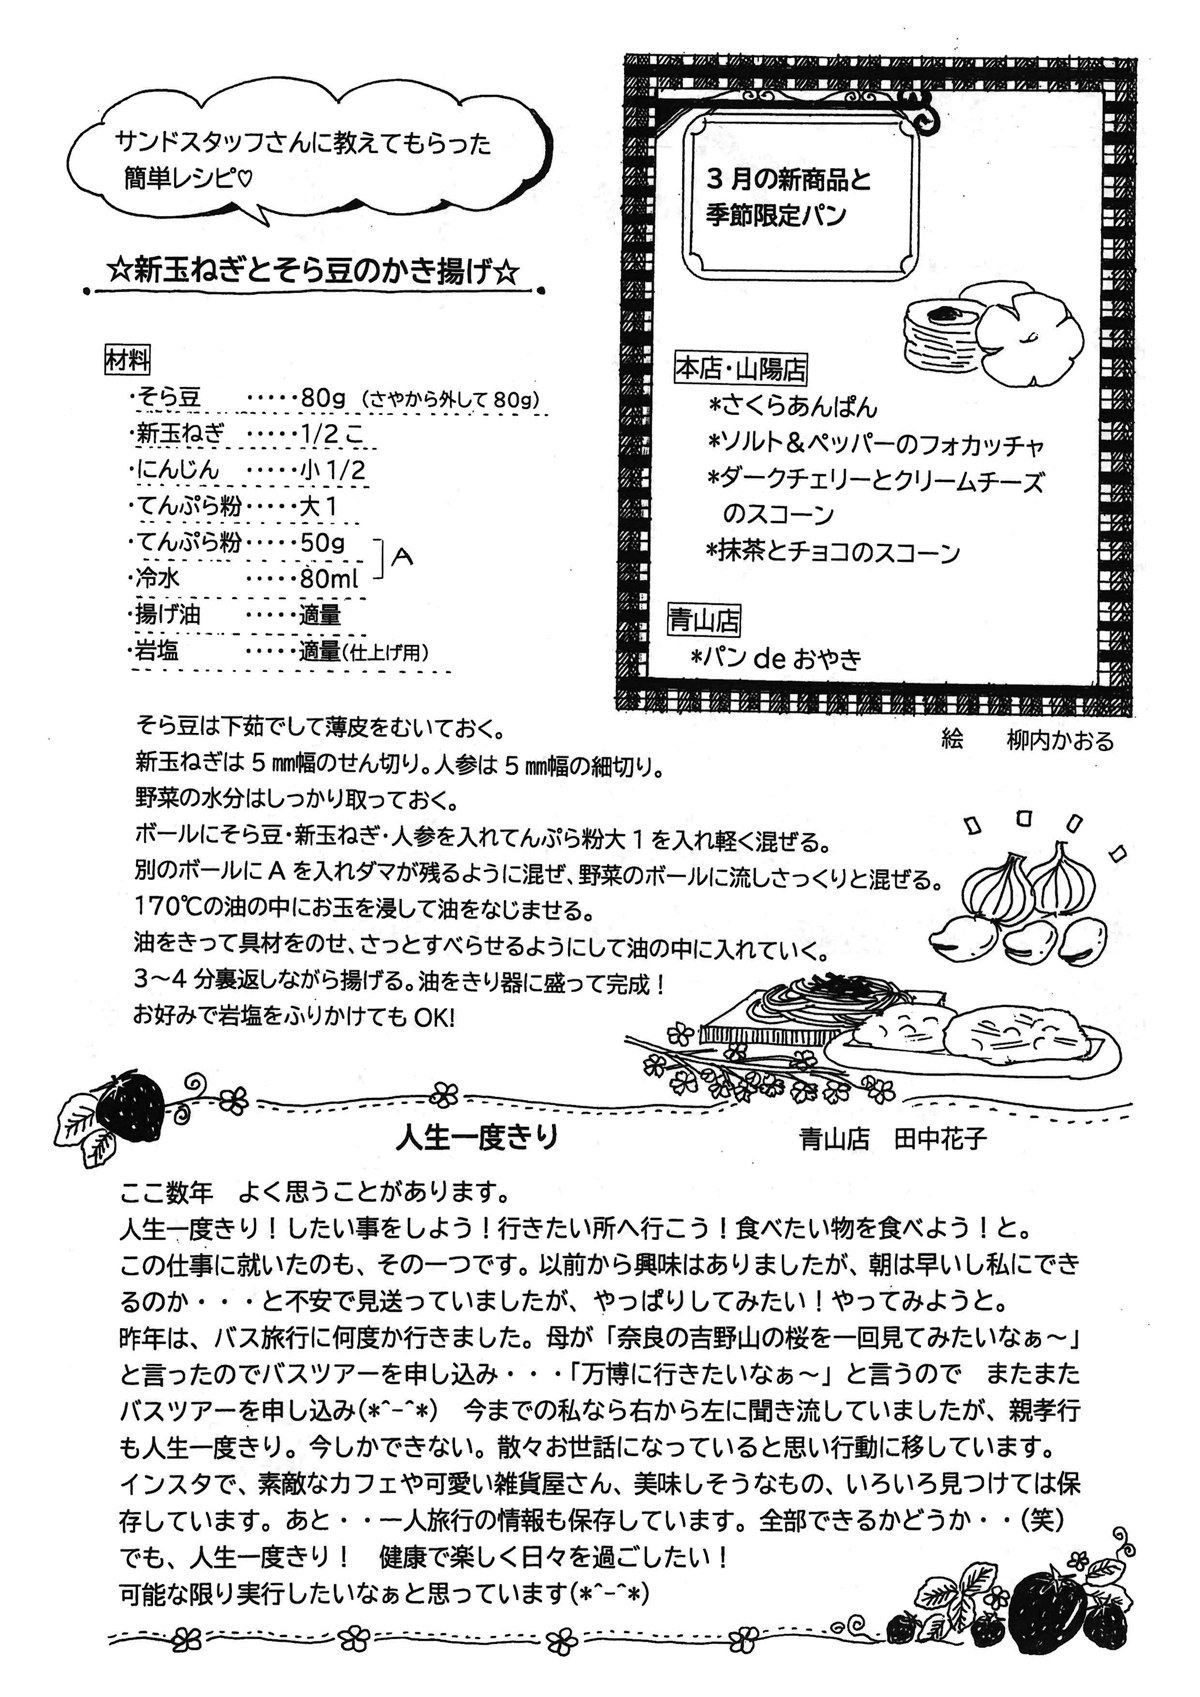 サンドスタッフさんに教えてもらった
簡単レシピ♡
☆新玉ねぎとそら豆のかき揚げ☆
材料
・そら豆 ・・・・・80g (さやから外して80g)
・新玉ねぎ ・・・・・1/2こ
・にんじん ・・・・・小1/2
・てんぷら粉・・・・・大1
・てんぷら粉・・・・・50g
A
・冷水 ・・・・・80ml
・揚げ油 ・・・・・適量
・岩塩 ・・・・・適量(仕上げ用)
3月の新商品と
季節限定パン
本店・山陽店
*さくらあんぱん
*ソルト&ペッパーのフォカッチャ
*ダークチェリーとクリームチーズ
のスコーン
*抹茶とチョコのスコーン
青山店
*パン de おやき
絵 柳内かおる
そら豆は下茹でして薄皮をむいておく。
新玉ねぎは5㎜幅のせん切り。人参は5㎜幅の細切り。
野菜の水分はしっかり取っておく。
ボールにそら豆・新玉ねぎ・人参を入れてんぷら粉大1を入れ軽く混ぜる。
別のボールにAを入れダマが残るように混ぜ、野菜のボールに流しさっくりと混ぜる。
170℃の油の中にお玉を浸して油をなじませる。
油をきって具材をのせ、さっとすべらせるようにして油の中に入れていく。
3～4分裏返しながら揚げる。油をきり器に盛って完成！
お好みで岩塩をふりかけてもOK!
人生一度きり 青山店 田中花子
ここ数年 よく思うことがあります。
人生一度きり！したい事をしよう！行きたい所へ行こう！食べたい物を食べよう！と。
この仕事に就いたのも、その一つです。以前から興味はありましたが、朝は早いし私にでき
るのか・・・と不安で見送っていましたが、やっぱりしてみたい！やってみようと。
昨年は、バス旅行に何度か行きました。母が「奈良の吉野山の桜を一回見てみたいなぁ～」
と言ったのでバスツアーを申し込み・・・「万博に行きたいなぁ～」と言うので またまた
バスツアーを申し込み(*^-^*) 今までの私なら右から左に聞き流していましたが、親孝行
も人生一度きり。今しかできない。散々お世話になっていると思い行動に移しています。
インスタで、素敵なカフェや可愛い雑貨屋さん、美味しそうなもの、いろいろ見つけては保
存しています。あと・・一人旅行の情報も保存しています。全部できるかどうか・・(笑)
でも、人生一度きり！ 健康で楽しく日々を過ごしたい！
可能な限り実行したいなぁと思っています(*^-^*)